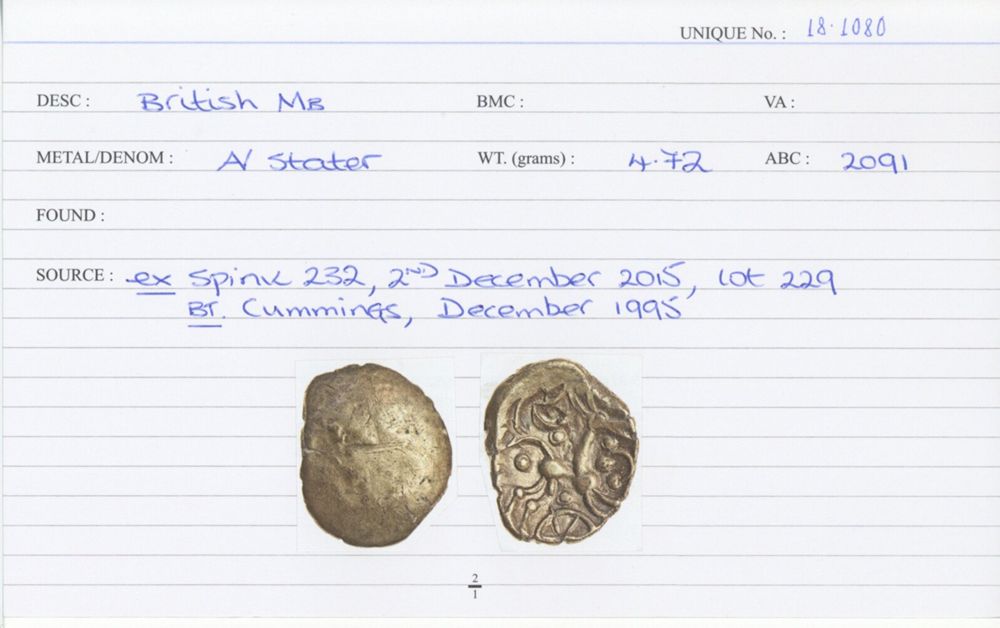 UNIQUE No. : 18.1080
DESC : British MB BMC : VA :
METAL/DENOM : A/ Stater WT. (grams) : 4.72 ABC : 2091
FOUND :
SOURCE : ex Spink 232, 2ND December 2015, lot 229
BT. Cummings, December 1995
2
1